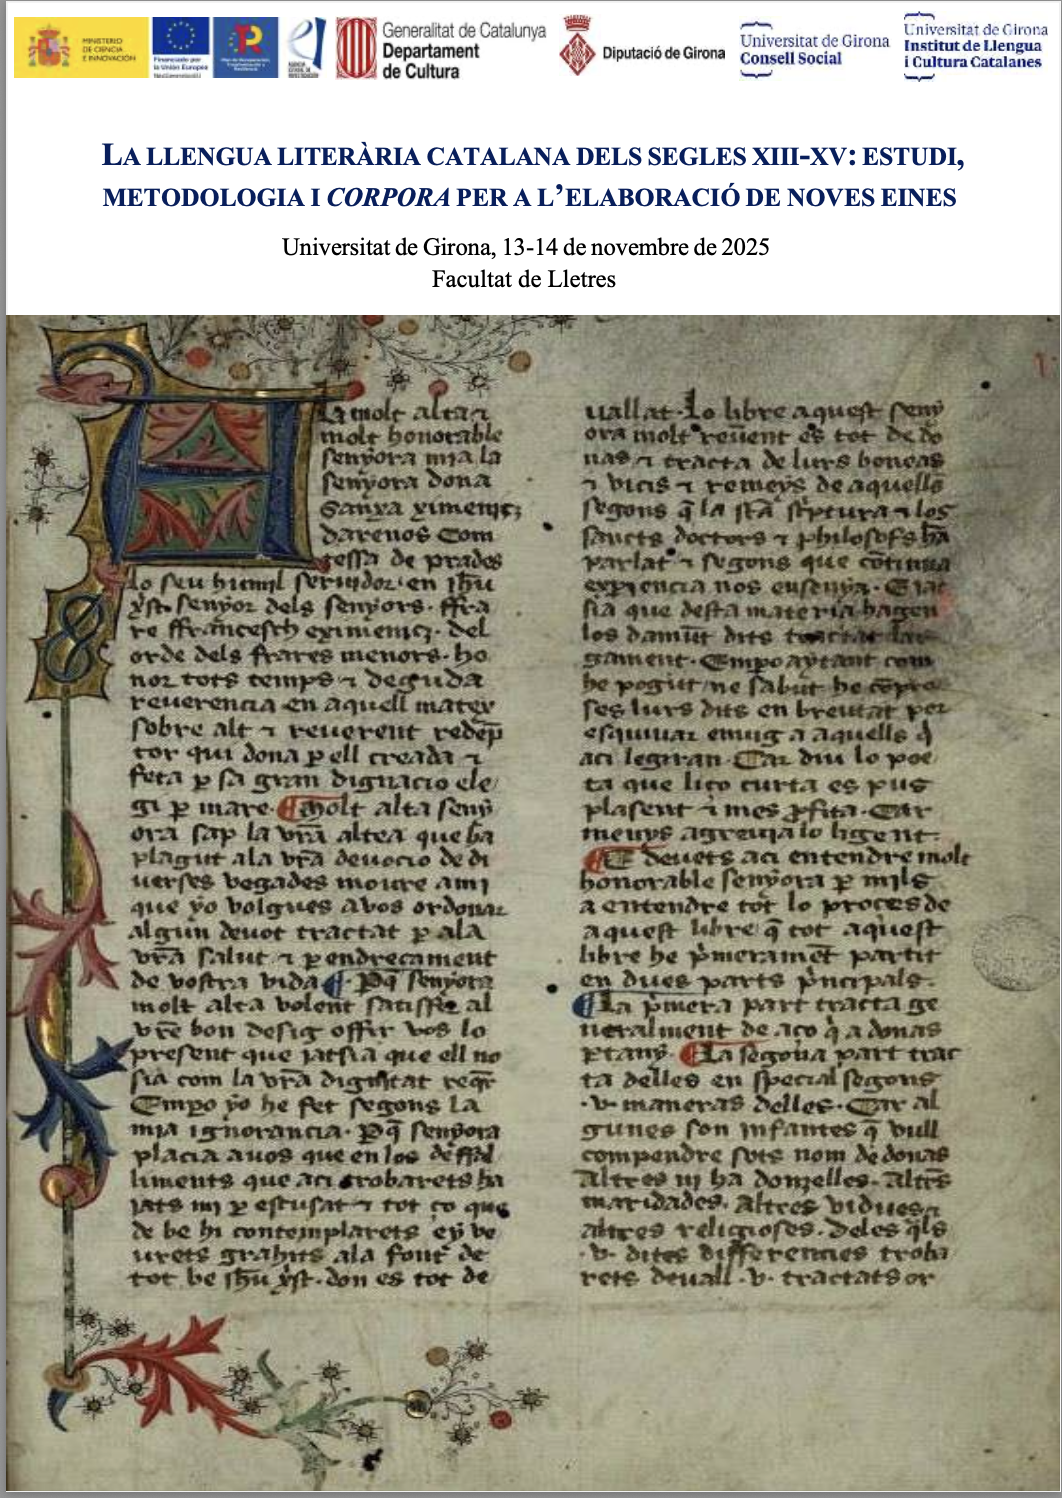 MINISTERIO
DE CIENCIA
E INNOVACIÓN
Financiado por
la Unión Europea
NextGenerationEU
Plan de Recuperación,
Transformación y
Resiliencia
AGENCIA
ESTATAL DE
INVESTIGACIÓN
Generalitat de Catalunya
Departament
de Cultura
Diputació de Girona
Universitat de Girona
Consell Social
Universitat de Girona
Institut de Llengua
i Cultura Catalanes
LA LLENGUA LITERÀRIA CATALANA DELS SEGLES XIII-XV: ESTUDI,
METODOLOGIA I CORPORA PER A L’ELABORACIÓ DE NOVES EINES
Universitat de Girona, 13-14 de novembre de 2025
Facultat de Lletres
A la molt alta ⁊
molt honorable
senyora mia la
senyora dona
Sanxa ximeniç
darenos Com
tessa de prades
lo seu humil seruidor en ihū
xp̄t senyor dels senyors. ffra
re ffrancesch eximeniç. del
orde dels frares menors. ho
nor tots temps ⁊ deguda
reuerencia en aquell matex
sobre alt ⁊ reuerent redēp
tor qui dona ꝑ ell creada ⁊
feta ꝑ sa gran dignacio ele
gi ꝑ mare. ¶ Molt alta seny
ora sap la vr̄a altea que ha
plagut ala vr̄a deuocio de di
uerses vegades moure ami
que yo volgues auos ordonar
algun deuot tractat ꝑ ala
vr̄a salut ⁊ ꝑ endreçament
de vostra vida ¶. Ꝑq̄ senyora
molt alta volent satisffer al
vr̄e bon desig offir vos lo
present que jatsia que ell no
sia com la vr̄a dignitat reqr̄
Empo yo he fet segons la
mia ignorancia. Ꝑq̄ senyora
placia auos que en los deffal
liments que aci trobarets ha
jats mi ꝑ escusat ⁊ tot ço que
de be hi contemplarets ey ve
urets grahits ala font de
tot be ihū xp̄t. don es tot de
uallat. Lo libre aquest seny
ora molt reūent es tot de do
nas ⁊ tracta de lurs bonças
⁊ vicis ⁊ remeys de aquells
segons q̄ la sc̄a sc̄ptura ⁊ los
sancts doctors ⁊ philosofs hā
parlat ⁊ segons que cōtinua
expiencia nos ensenya. E jat
sia que desta materia hagen
los damūt dits tractat lar
gament. Empo aytant com
he pogut ne sabut he cōpre
ses lurs dits en breutat per
esquiuar enuig a aquells q̄
aci legiran. Car diu lo poe
ta que liço curta es pus
plasent ⁊ mes ꝓfita. Car
menys agreuja lo ligent.
¶ E deuets aci entendre molt
honorable senyora ꝑ mils
a entendre tot lo proces de
aquest libre q̄ tot aquest
libre he pⁱmeramēt partit
en dues parts pⁱncipals.
¶ La pⁱmera part tracta ge
neralment de aço q̄ a donas
ꝑtany. ¶ La segona part trac
ta delles en special segons
.v. maneras delles. Car al
gunes son infantes q̄ vull
compendre sots nom de donas
Altres ni ha donzelles. Altr̄s
maridades. Altres vidues ⁊
altres religioses. Deles qls̄
.v. dites differencies troba
rets deuall .v. tractats or